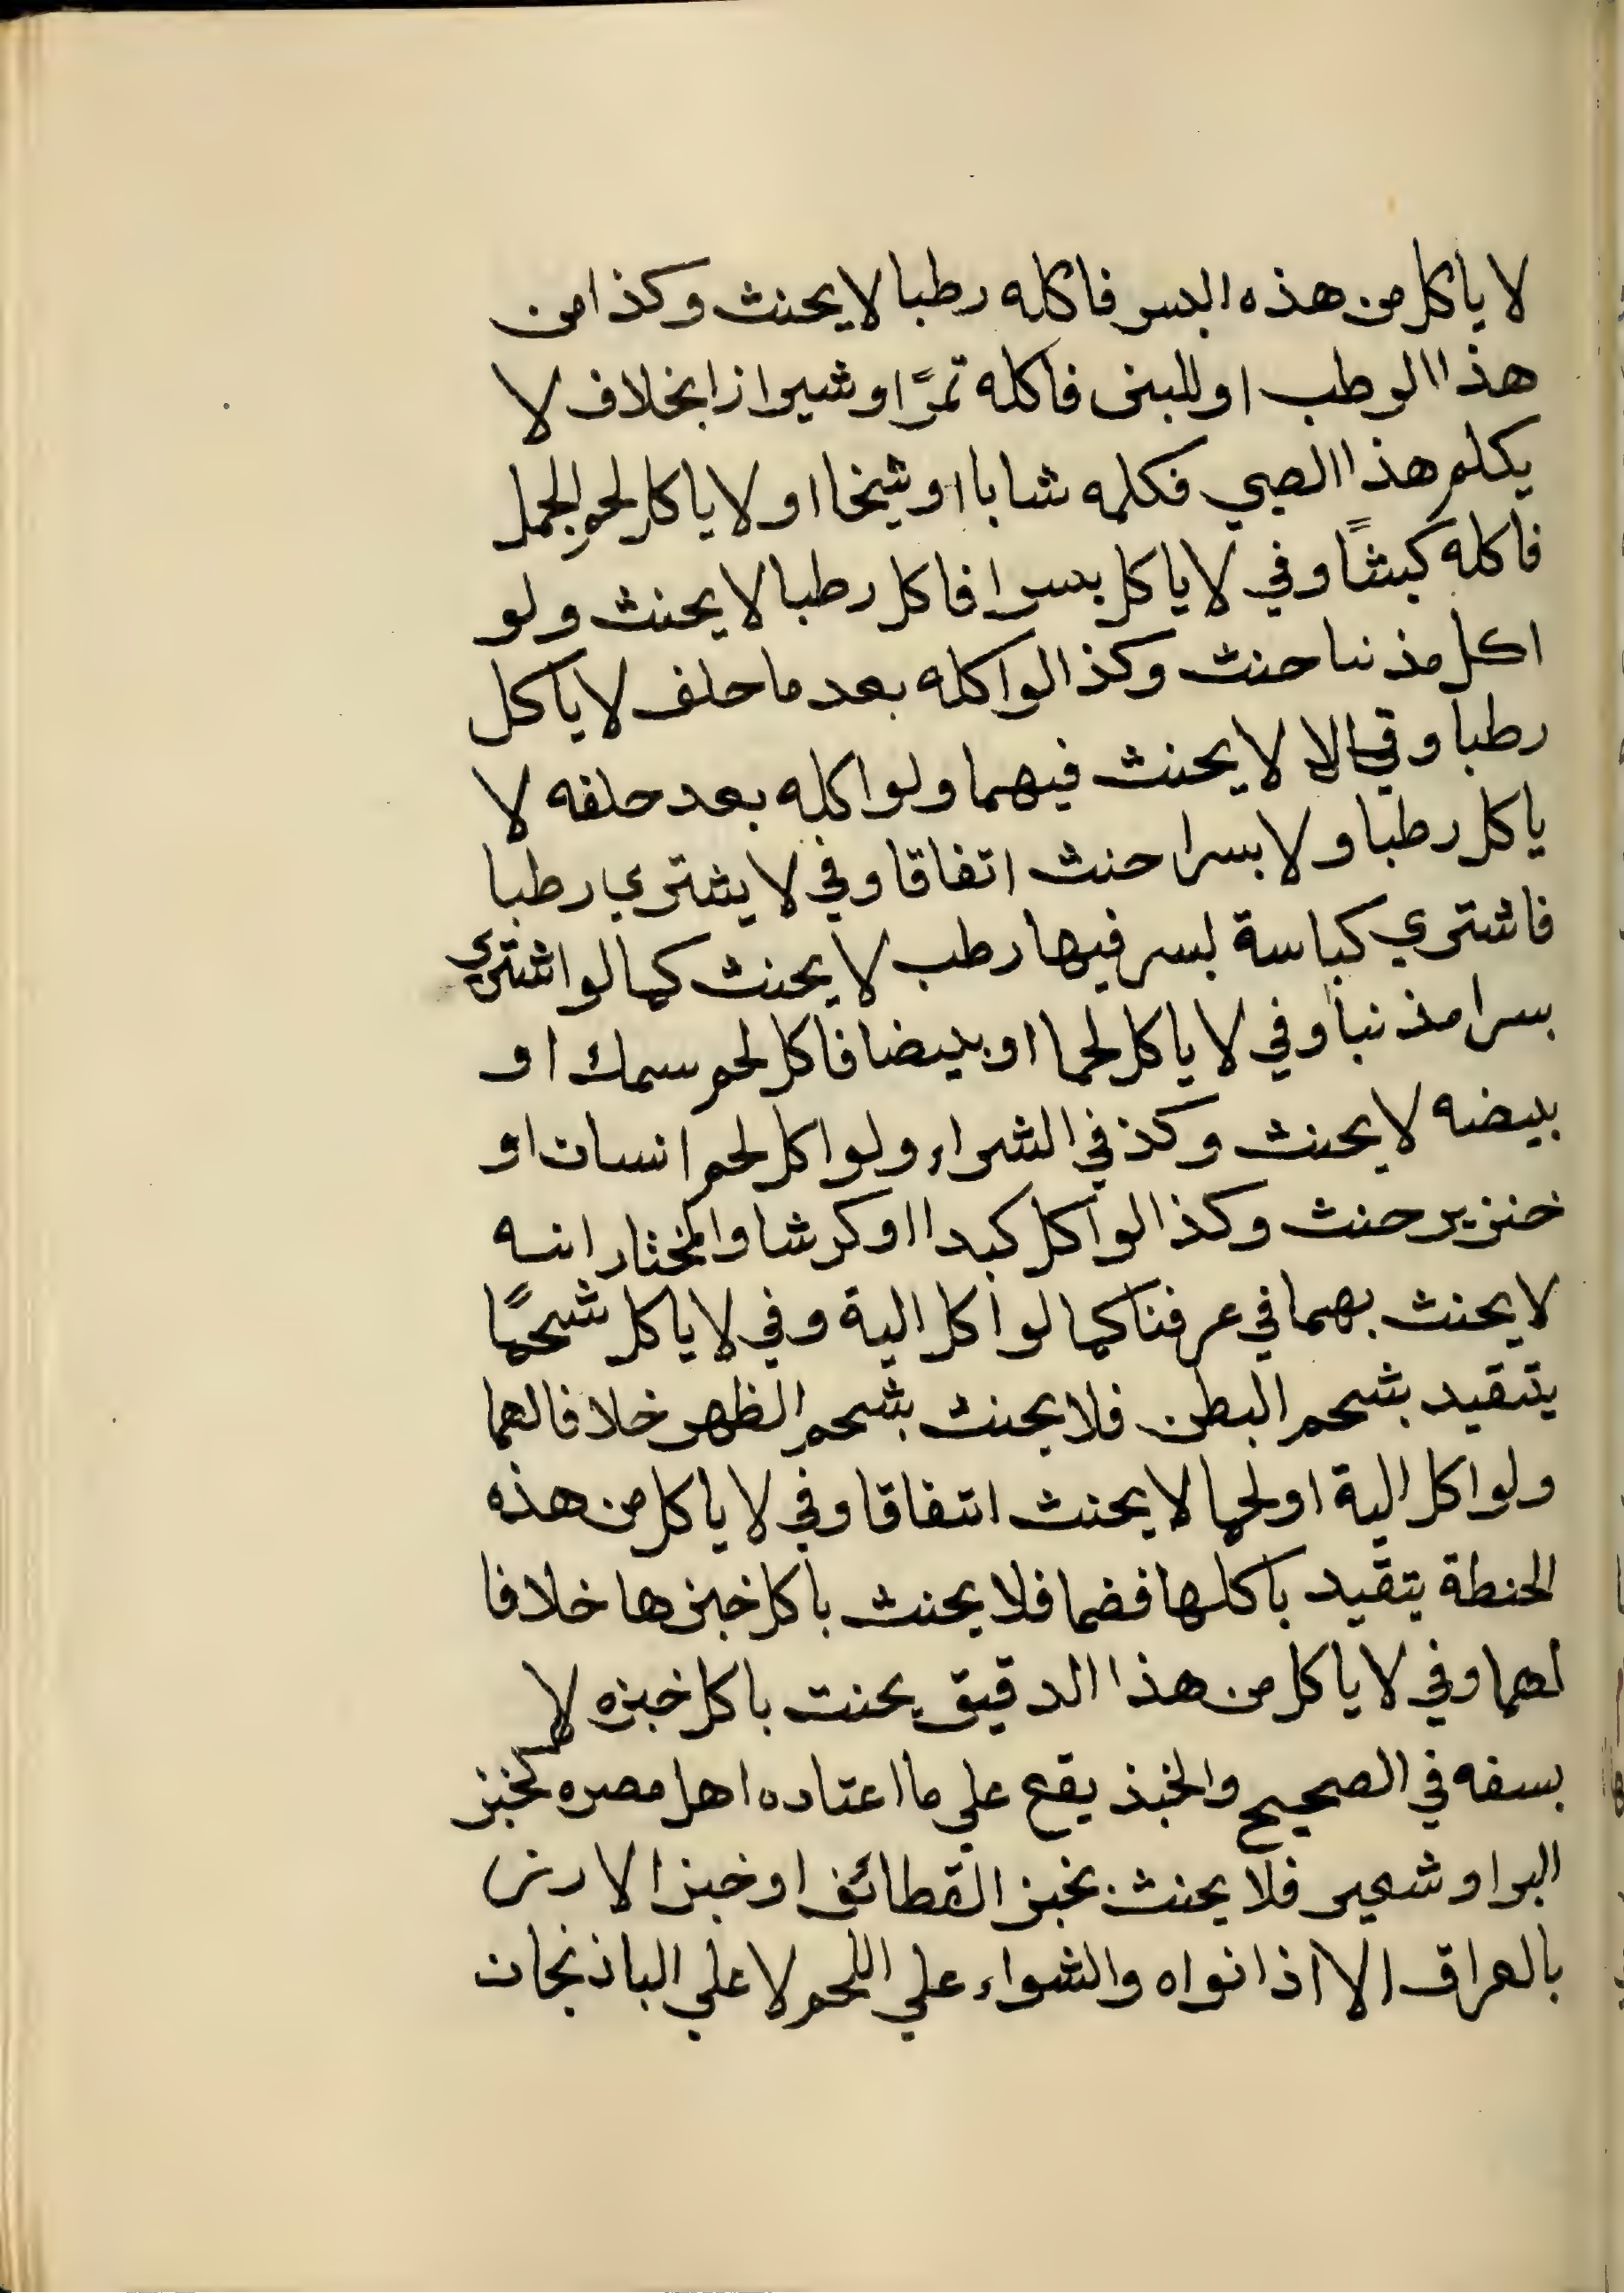 لا ياكل من هذه البسر فاكله رطبا لا يحنث وكذا من
هذا الرطب او للبنى فاكله تمرًا او شيرازا بخلاف لا
يكلم هذا الصبي فكلمه شابا او شيخا او لا ياكل لحم الجمل
فاكله كبشًا وفي لا ياكل بسرا فاكل رطبا لا يحنث ولو
اكل مذنبا حنث وكذا لو اكله بعد ما حلف لا ياكل
رطبا وقالا لا يحنث فيهما ولو اكله بعد حلفه لا
ياكل رطبا ولا بسرا حنث اتفاقا وفي لا يشتري رطبا
فاشتري كباسة بسر فيها رطب لا يحنث كما لو اشتري
بسرا مذنبا وفي لا ياكل لحما او بيضا فاكل لحم سمك او
بيضه لا يحنث وكذ في الشراء ولو اكل لحم انسان او
خنزير حنث وكذا لو اكل كبدا او كرشا والمختار انه
لا يحنث بهما في عرفنا كما لو اكل الية وفي لا ياكل شحمًا
يتقيد بشحم البطن فلا يحنث بشحم الظهر خلافا لهما
ولو اكل الية او لحما لا يحنث اتفاقا وفي لا ياكل من هذه
الحنطة يتقيد باكلها فضما فلا يحنث باكل خبزها خلافا
لهما وفي لا ياكل من هذا الدقيق يحنث باكل خبزه لا
بسفه في الصحيح والخبذ يقع علي ما اعتاده اهل مصره كخبز
البر او شعير فلا يحنث بخبز القطائف او خبز الارز
بالعراق الا اذا نواه والشواء علي اللحم لا علي الباذنجان